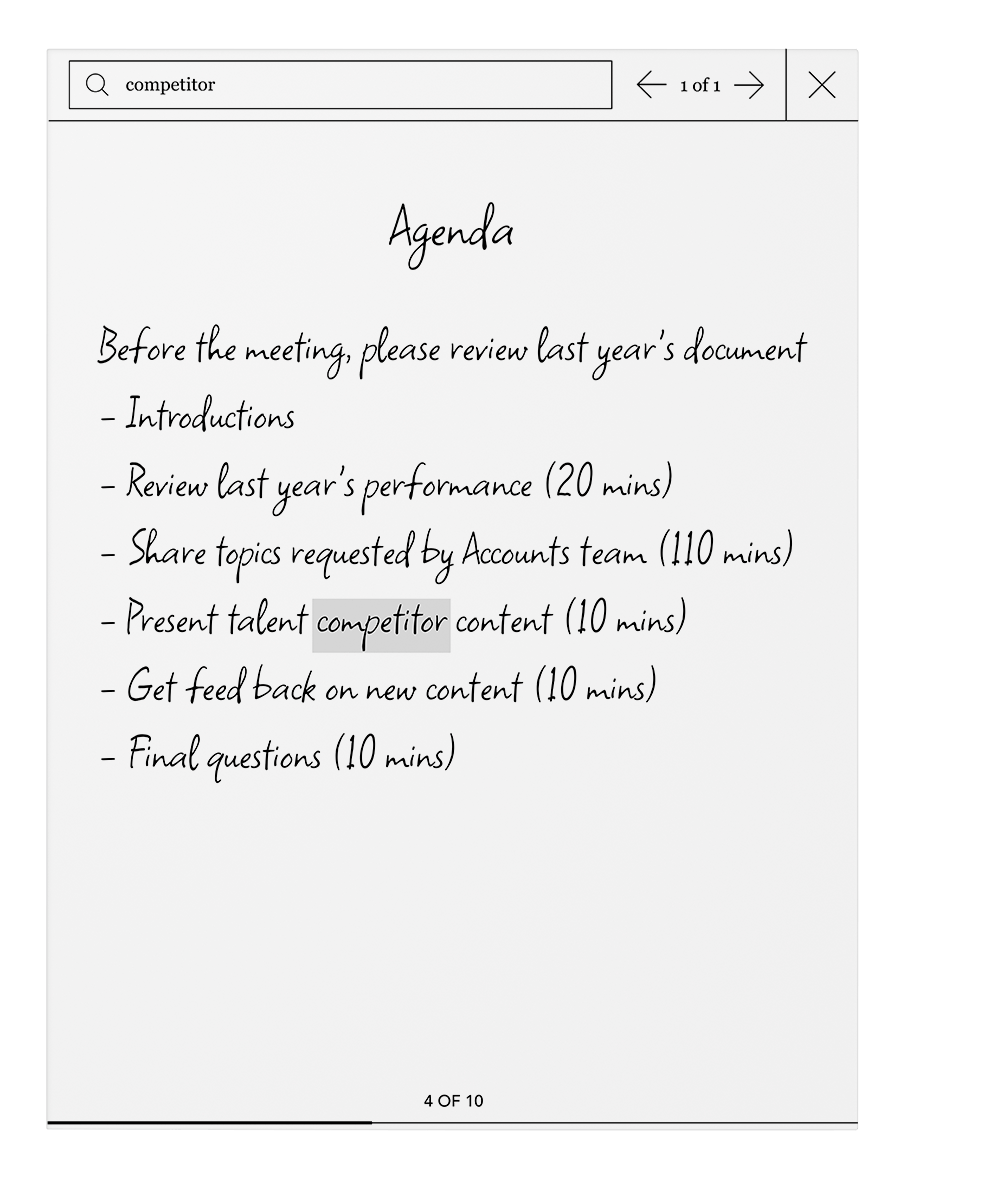 competitor
1 of 1
Agenda
Before the meeting, please review last year's document
- Introductions
- Review last year's performance (20 mins)
- Share topics requested by Accounts team (110 mins)
- Present talent competitor content (10 mins)
- Get feed back on new content (10 mins)
- Final questions (10 mins)
4 OF 10